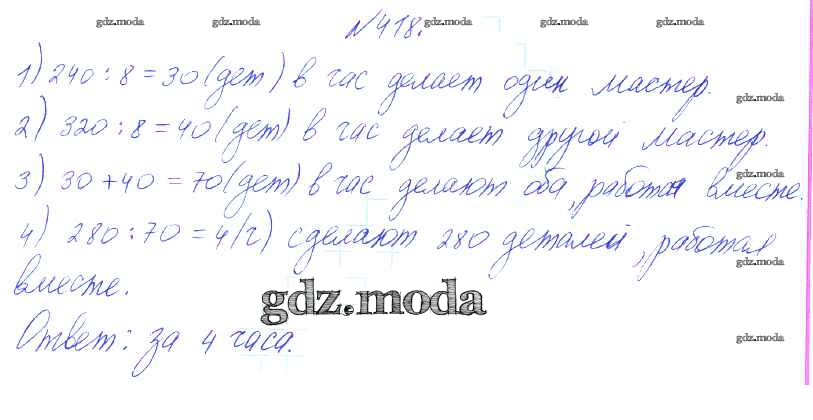 gdz.moda gdz.moda №418. gdz.moda gdz.moda
1) 240 : 8 = 30 (дет) в час делает один мастер.
gdz.moda
2) 320 : 8 = 40 (дет) в час делает другой мастер.
gdz.moda
3) 30 + 40 = 70 (дет) в час делают оба, работая вместе.
4) 280 : 70 = 4 (г) сделают 280 деталей, работая
gdz.moda
вместе.
gdz.moda
Ответ: за 4 часа.
gdz.moda